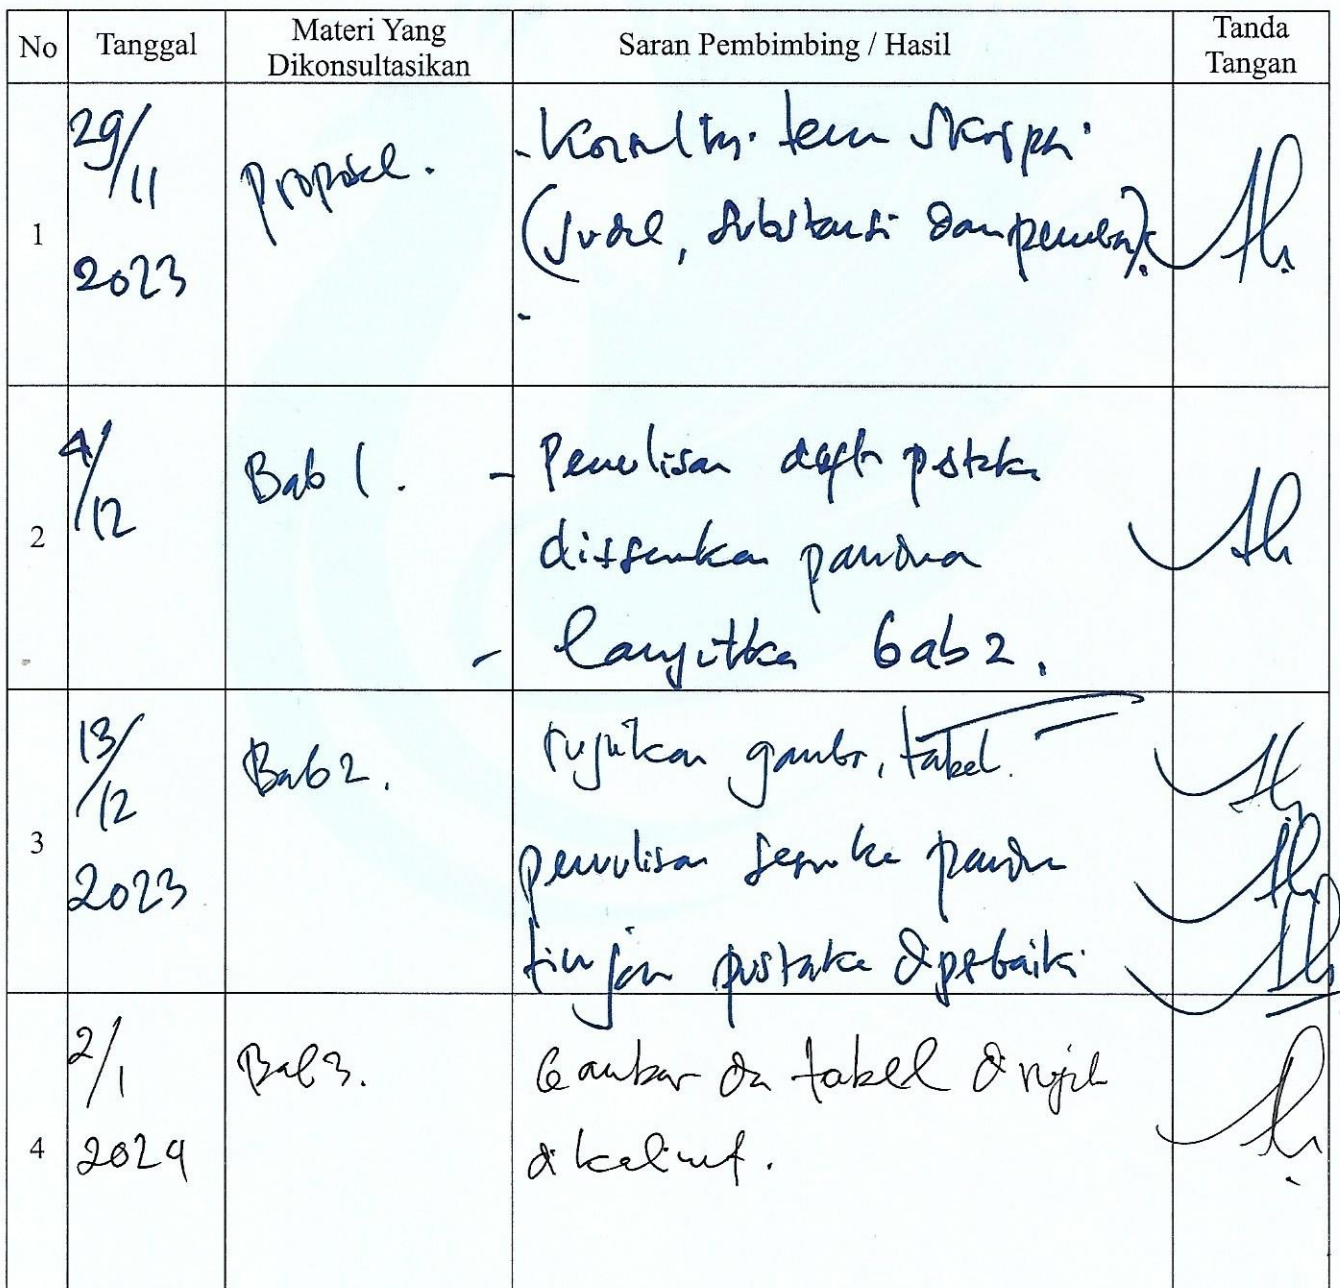 No Tanggal Materi Yang Dikonsultasikan Saran Pembimbing / Hasil Tanda Tangan
1
29/11
2023
Proposal.
- Konsultasi tema skripsi
(Judul, substansi dan
-
2
4/12
Bab 1.
- Penulisan daftar pustaka
disesuaikan panduan
- Lanjutkan bab 2.
3
13/12
2023
Bab 2.
rujukan gambar, tabel.
penulisan sesuaikan panduan
tinjauan pustaka diperbaiki
4
2/1
2024
Bab 3.
Gambar dan tabel dirujuk
di kalimat.